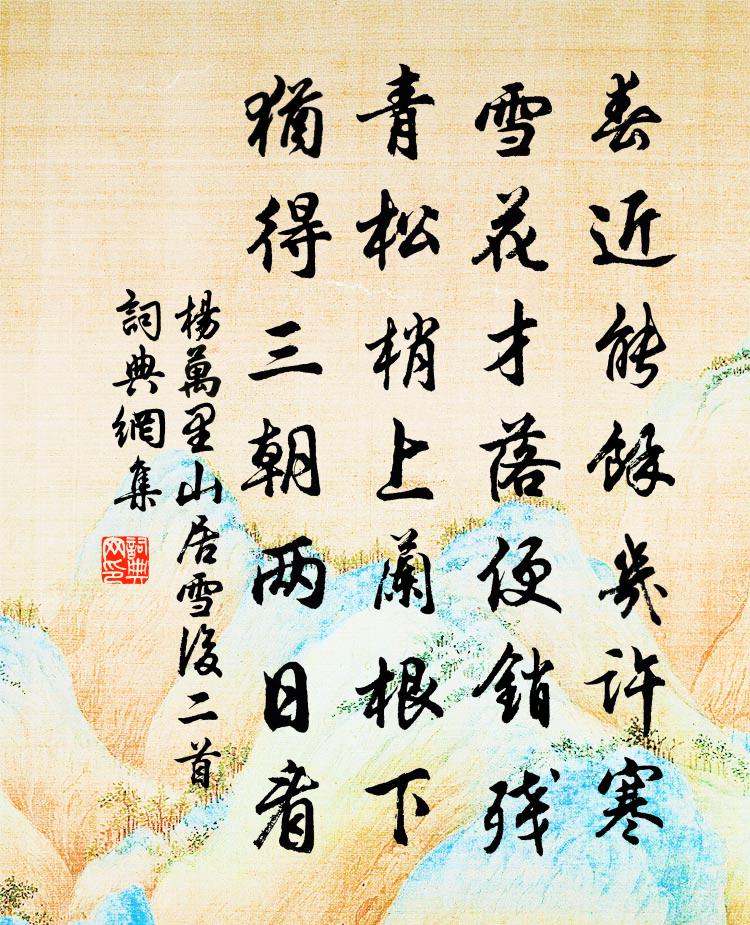 春近能餘幾許寒
雪花才落便銷残
青松梢上蘭根下
猶得三朝两日看
楊萬里山居雪後二首
詞典網集
詞典
网印